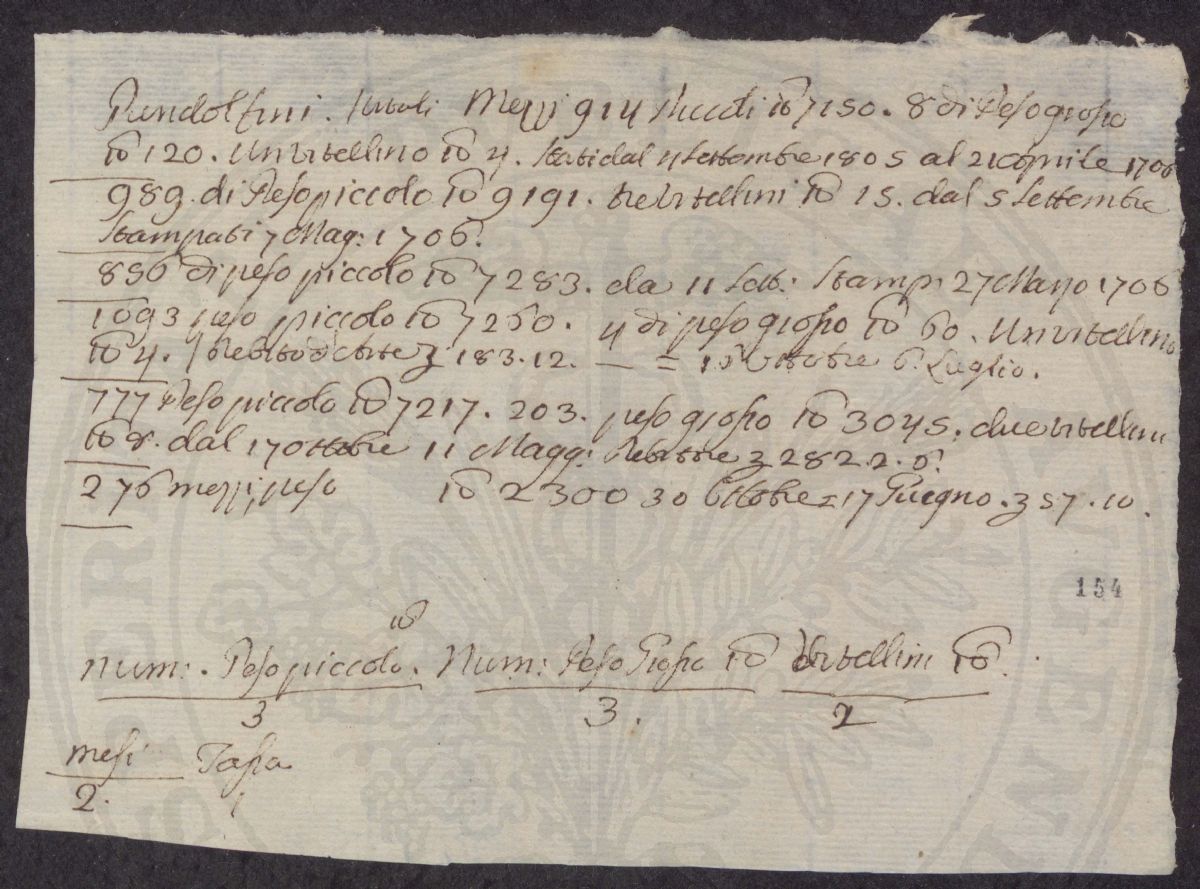 Pandolfini. Mezzi 914 Ricci 7150. 8 di Peso grosso
120. Un vitellino 4. Stati dal 4 Settembre 1805 al 21 Aprile 1706
989. di Peso piccolo 9191. tre vitellini 15. dal 5 Settembre
Stampati 7 Mag: 1706.
896 di peso piccolo 7283. da 11 Sett: Stamp: 27 Marzo 1706
1093 peso piccolo 7260. 4 di peso grosso 60. Un vitellino
4. 183.12. — = Ottobre 6. Luglio.
777 Peso piccolo 7217. 203. peso grosso 3045. due vitellini
8. dal 17 Ottobre 11 Magg: 282.2.6.
276 mezzi, peso 2300 30 Ottobre = 17 Giugno. 57.10.
154
Num:. Peso piccolo. Num: Peso Grosso Vitellini
3 3. 2
Mesi Tassa
2. 1